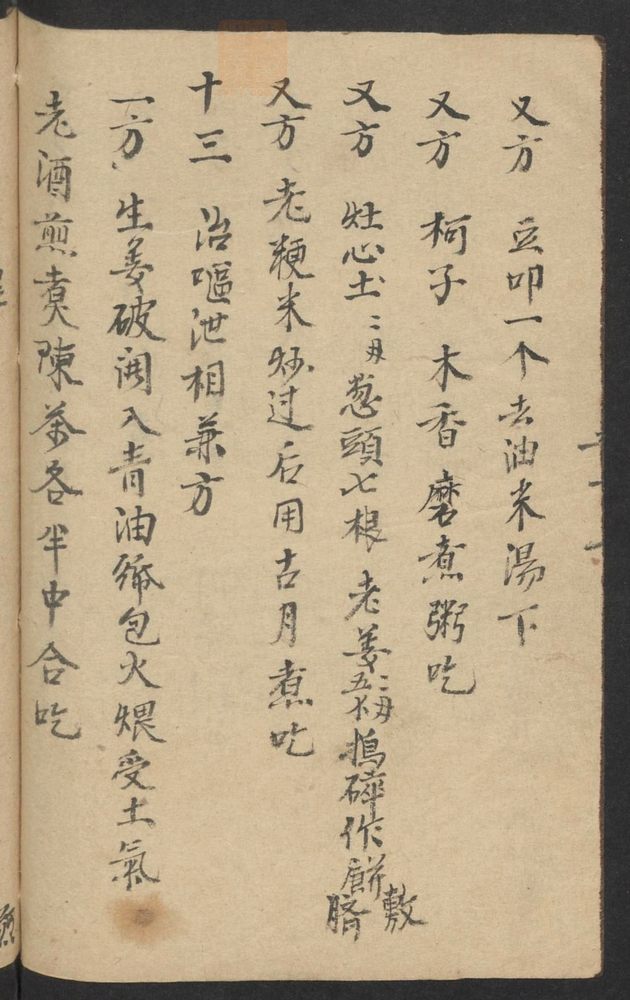 又方 豆叩一个去油米湯下
又方 柯子 木香 磨煮粥吃
又方 灶心土二両 葱頭七根 老姜二両 搗碎作餅敷臍
又方 老粳米炒过后用古月煮吃
十三 治嘔泄相兼方
一方 生姜破開入青油 包火煨受土氣
老酒煎煑陳茶各半中合吃